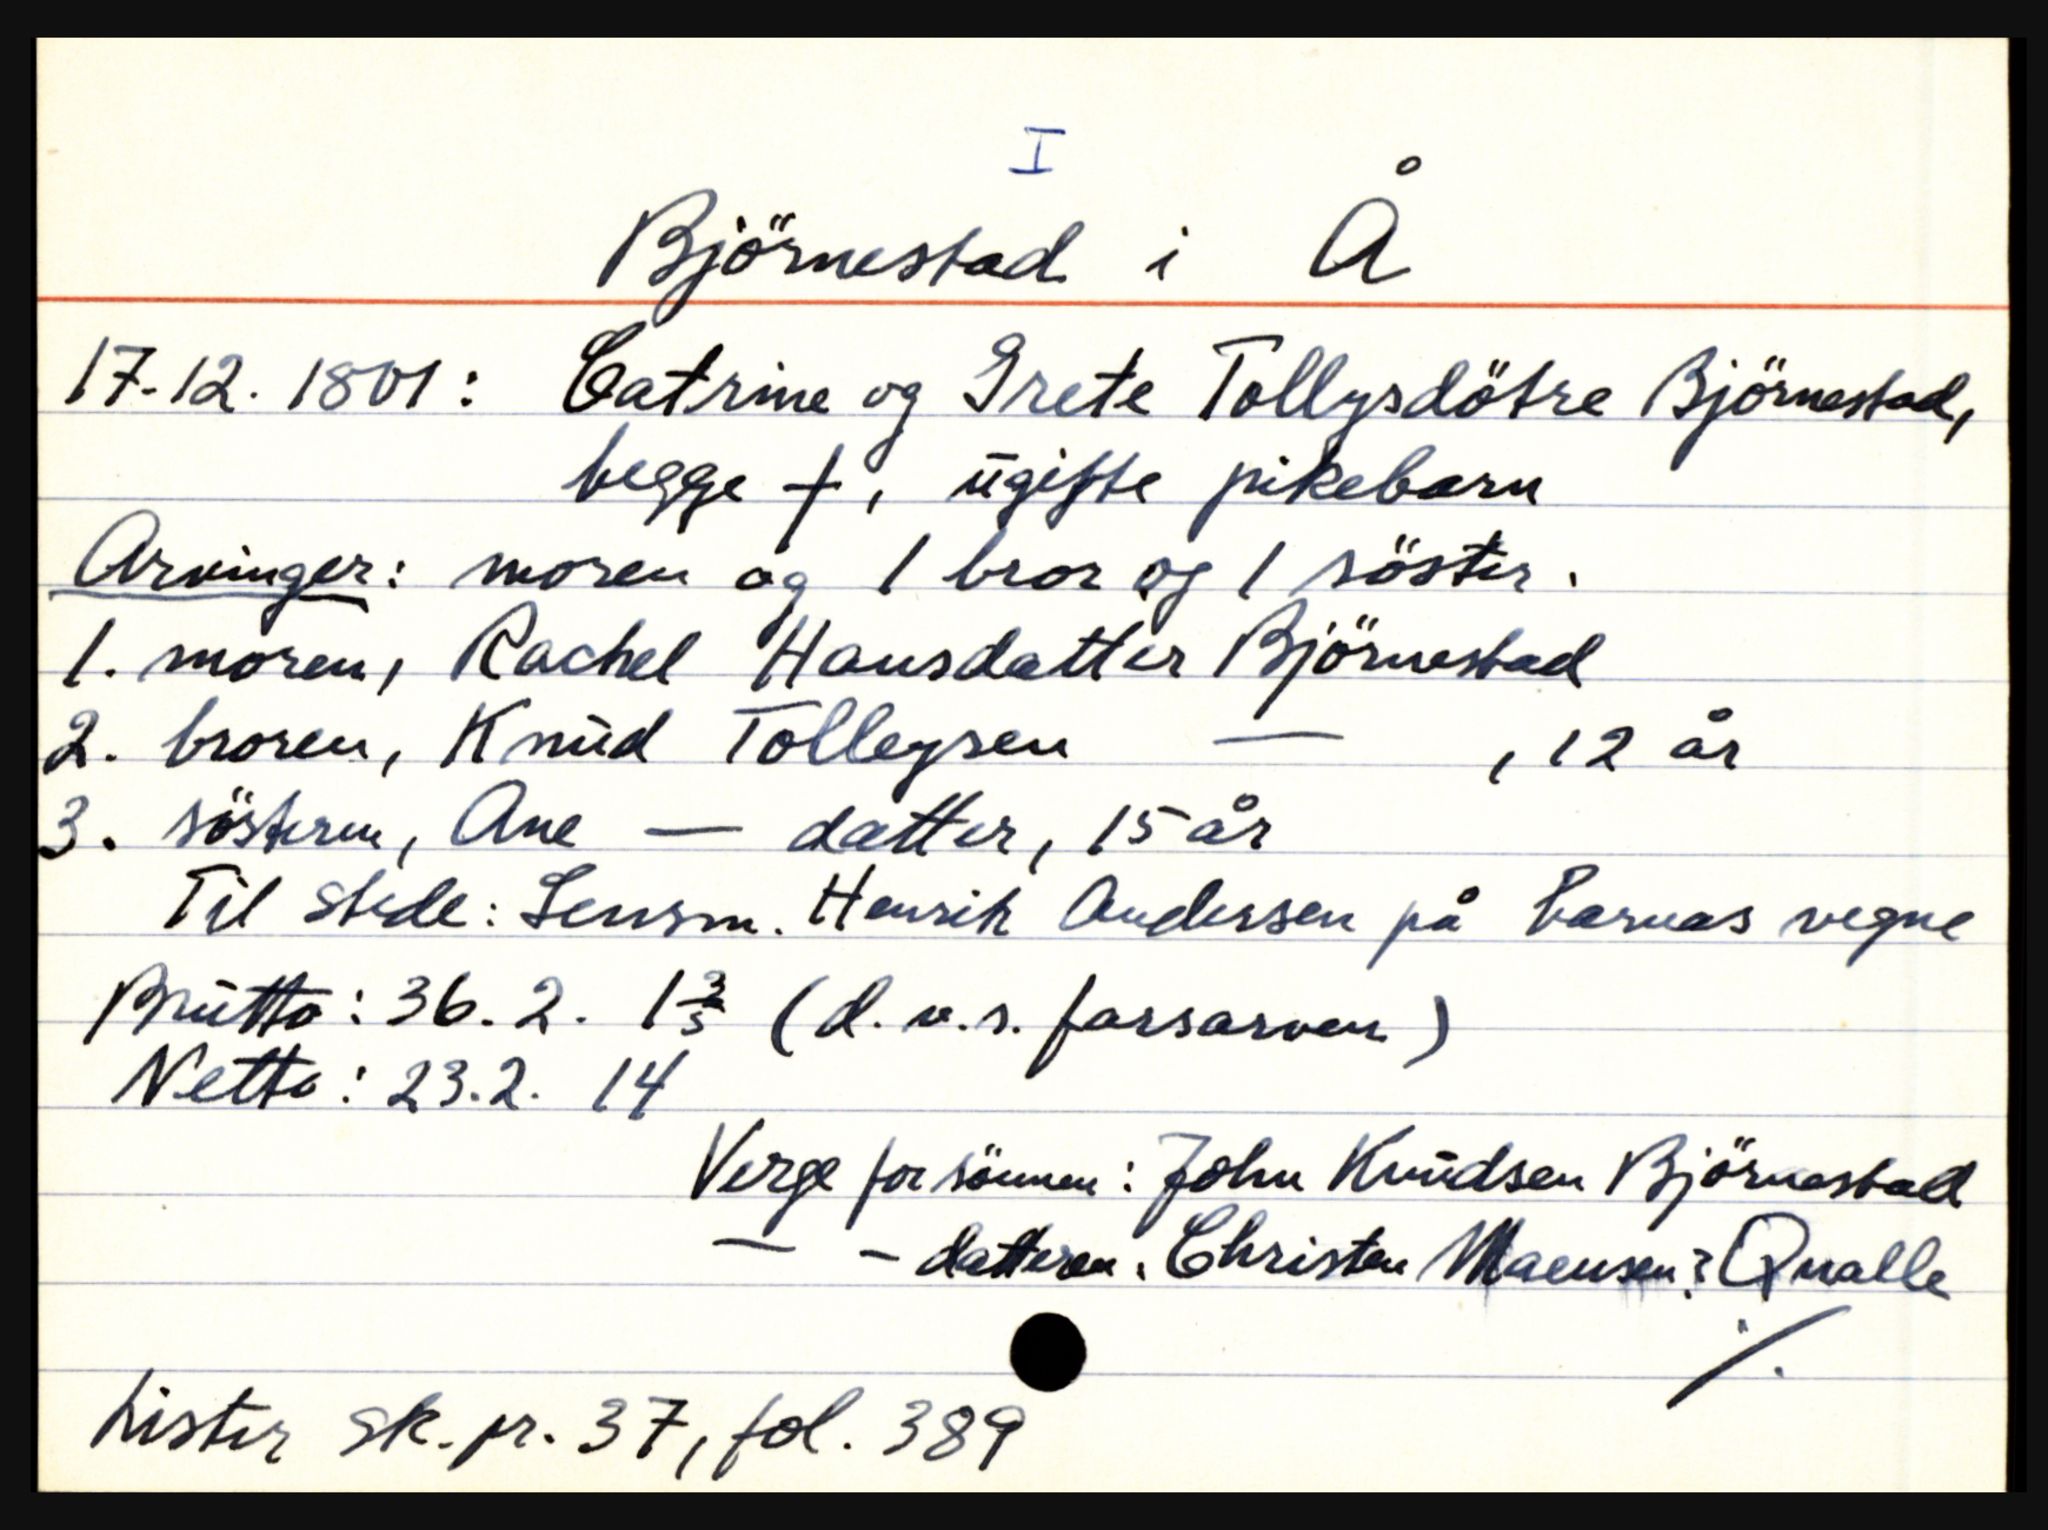 I
Björnestad i Å
17.12.1801: Catrine og Grete Tollysdötre Björnestad,
begge †, ugifte pikebarn
Arvinger: moren og 1 bror og 1 söster.
1. moren, Rachel Hansdatter Björnestad
2. broren, Knud Tolleysen — , 12 år
3. sösteren, Ane — datter, 15 år
Til stede: Lensm. Henrik Andersen på barnas vegne
Brutto: 36. 2. 1 3/5 (d.v.s. farsarven)
Netto: 23.2. 14
Verge for sönnen: John Knudsen Björnestad
— - datteren: Christen ? Qualle
./.
Lister sk.pr. 37, fol. 389